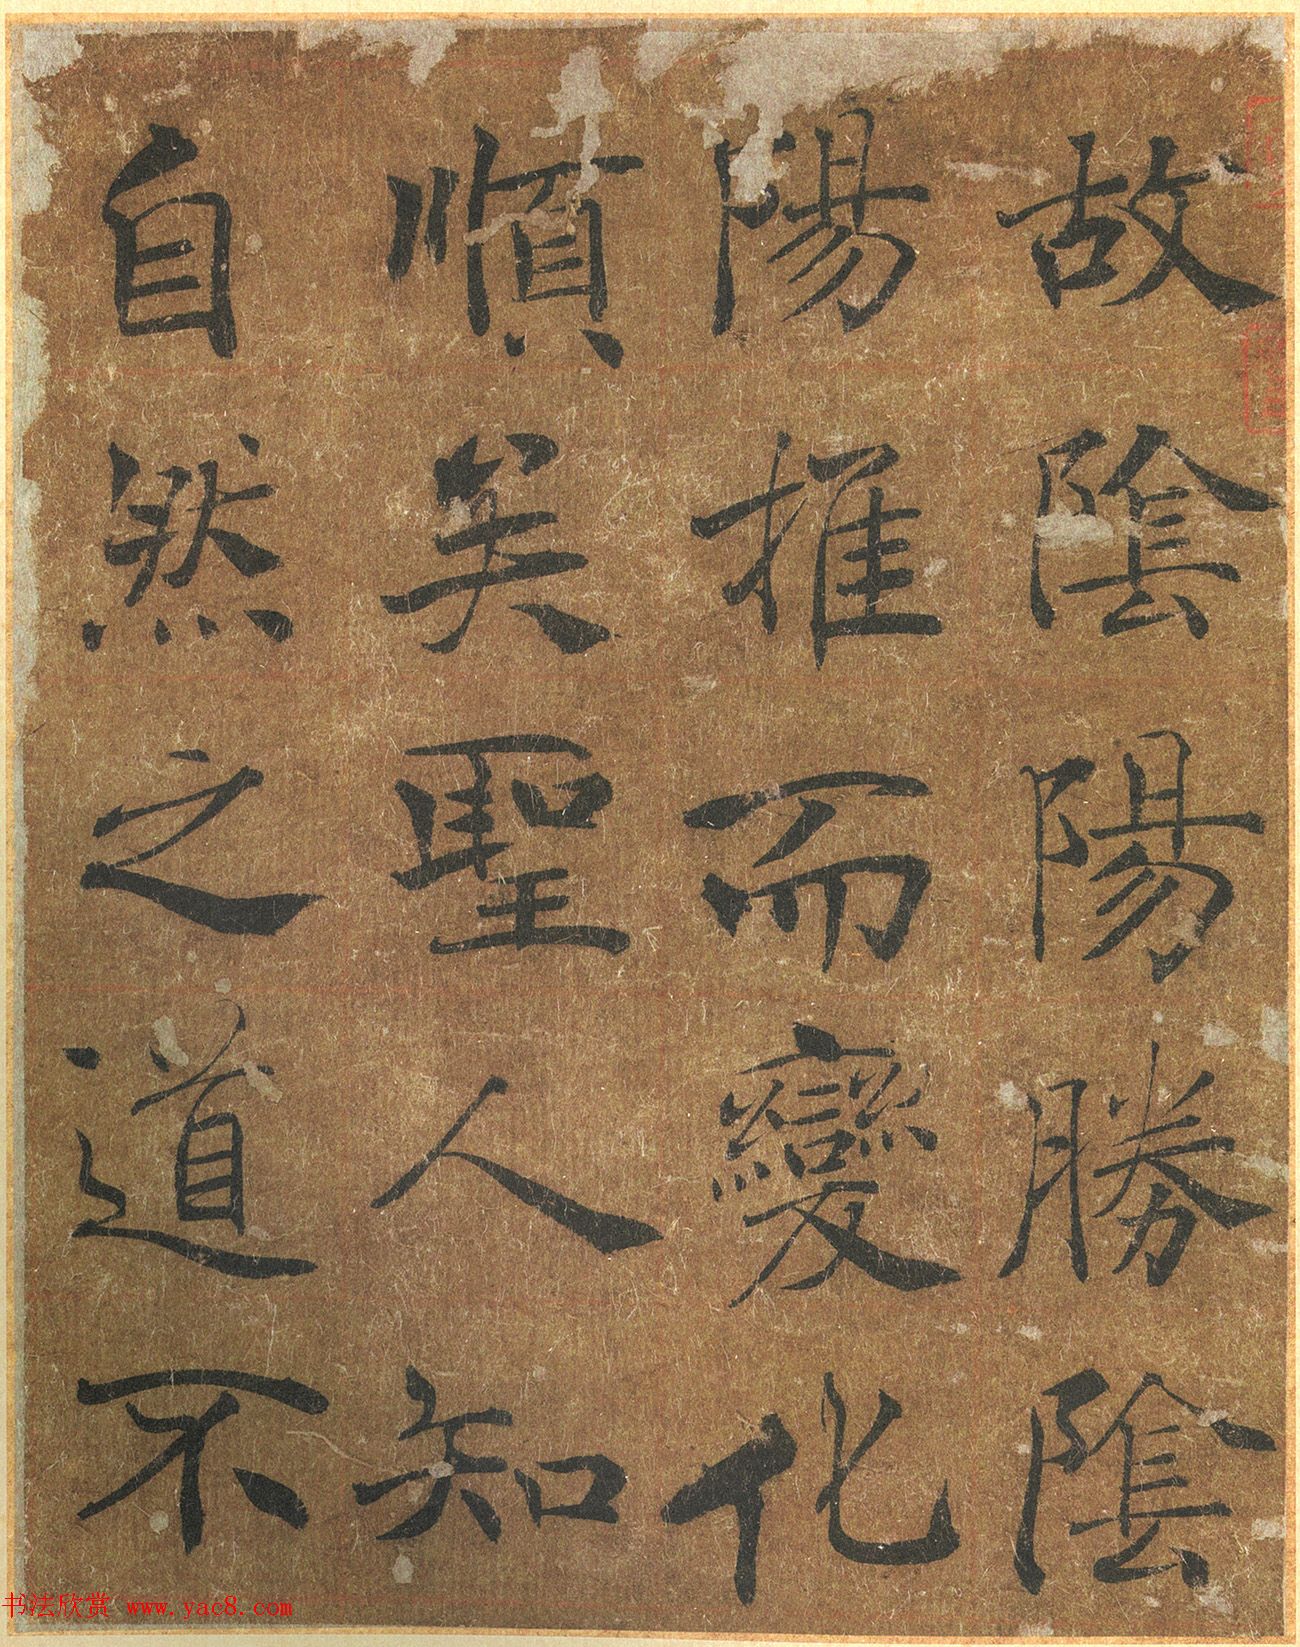 故陰陽勝陰
陽推而變化
順矣聖人知
自然之道不
书法欣赏 www.yac8.com